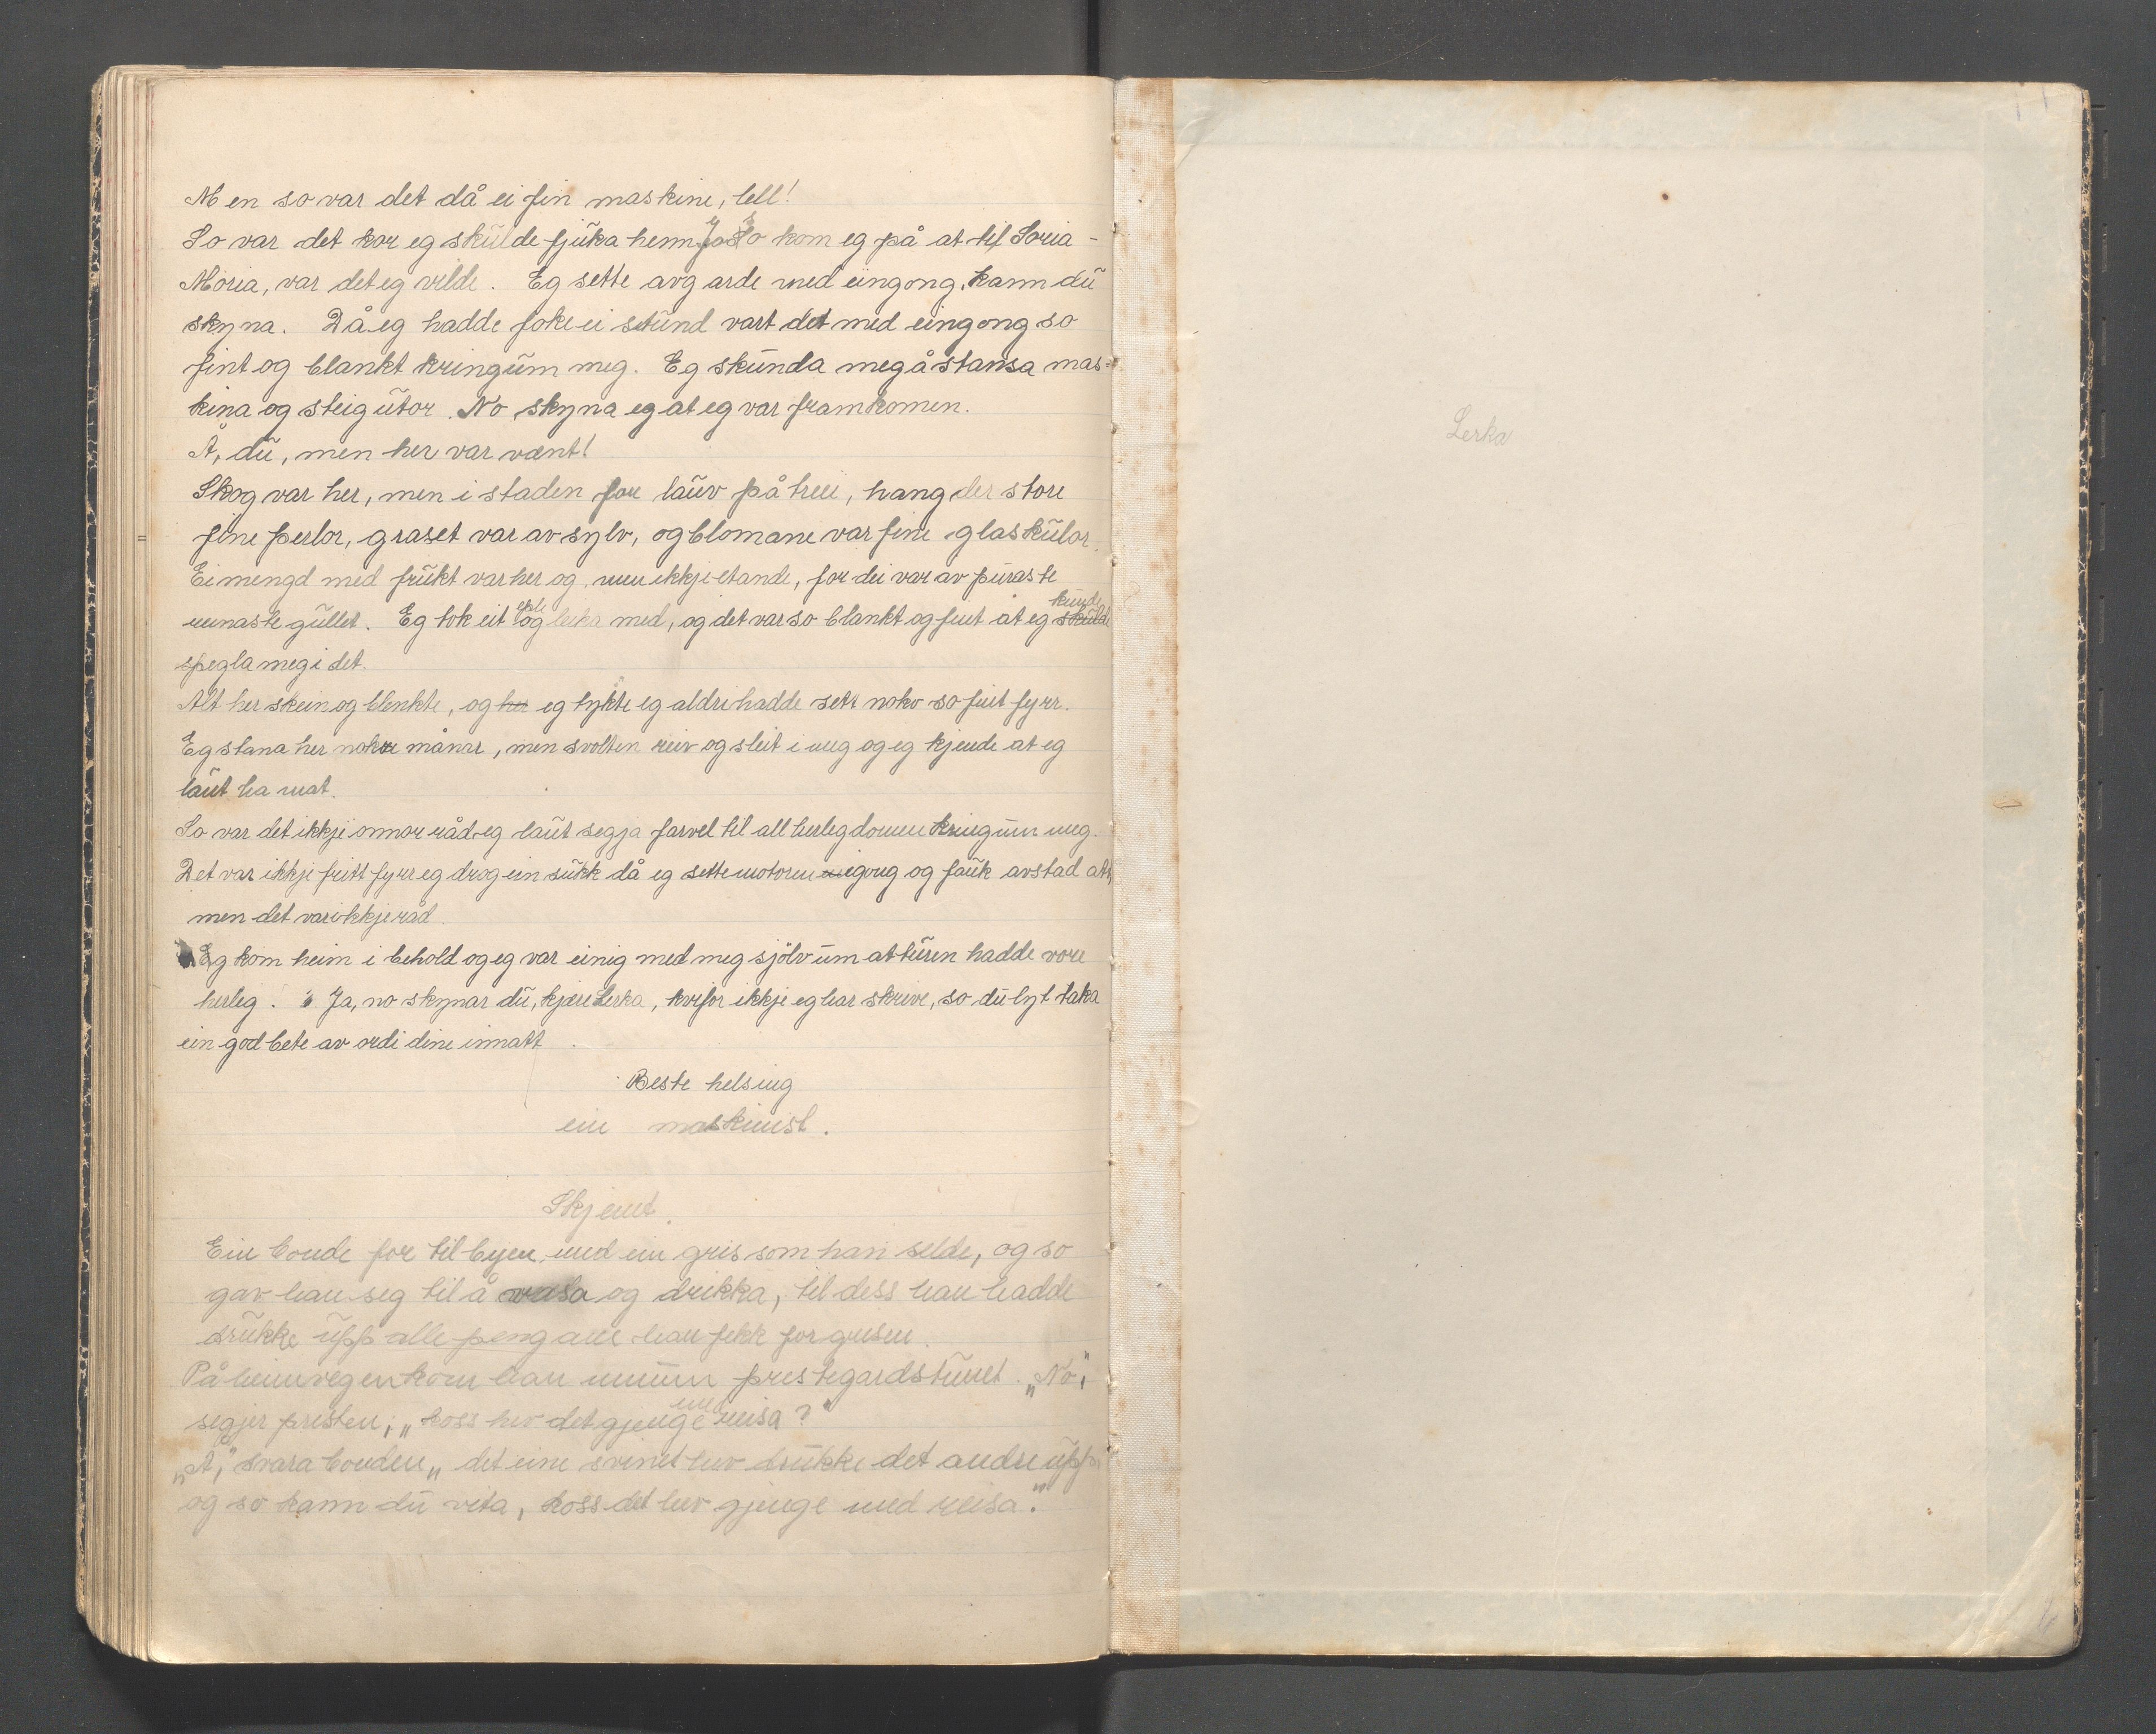 Men so var det då ei fin maskine, lell!
So var det kor eg skulde fjuka henn. Jo so kom eg på at til Soria-
Moria, var det eg vilde. Eg sette avgarde med eingong, kann du
skyna. Då eg hadde foke ei stund vart det med eingong so
fint og blankt kringum meg. Eg skunda meg å stansa mas-
kina og steig utor. No skyna eg at eg var framkomen.
Å, du, men her var vent!
Skog var her, men i staden for lauv på trei, hang der store
fine perlor, graset var av sylv, og blomane var fine glaskulor.
Ei mengd med frukt var her og, men ikkje etande, for dei var av puraste
reinaste gullet. Eg tok eit eple og leika med, og det var so blankt og fint at eg skulde kunde
spegla meg i det.
Alt her skein og blenkte, og her eg tykte eg aldri hadde sett noko so fint fyrr.
Eg stana her nokre månar, men svolten reiv og sleit i meg og eg kjende at eg
laut ha mat.
So var det ikkje onnor råd eg laut segja farvel til all herlegdomen kringum meg.
Det var ikkje fritt fyrr eg drog ein sukk då eg sette motoren igong og fauk avstad att,
men det var ikkje råd.
Eg kom heim i behold og eg var einig med meg sjölv um at turen hadde vore
herleg. Ja, no skynar du, kjære Lerka, kvifor ikkje eg har skrive, so du lyt taka
ein god bete av ordi dine innatt.
Beste helsing
ein maskinist.
Skjemt.
Ein bonde for til byen med ein gris som han selde, og so
gav han seg til å rasa og drikka, til dess han hadde
drukke upp alle pengane han fekk for grisen.
På heimvegen kom han innum prestegardstunet. „No,"
segjer presten, „koss hev det gjenge med reisa?"
„Å," svara bonden „det eine svinet hev drukke det andre upp,
og so kann du vita, koss det hev gjenge med reisa."
Lerka